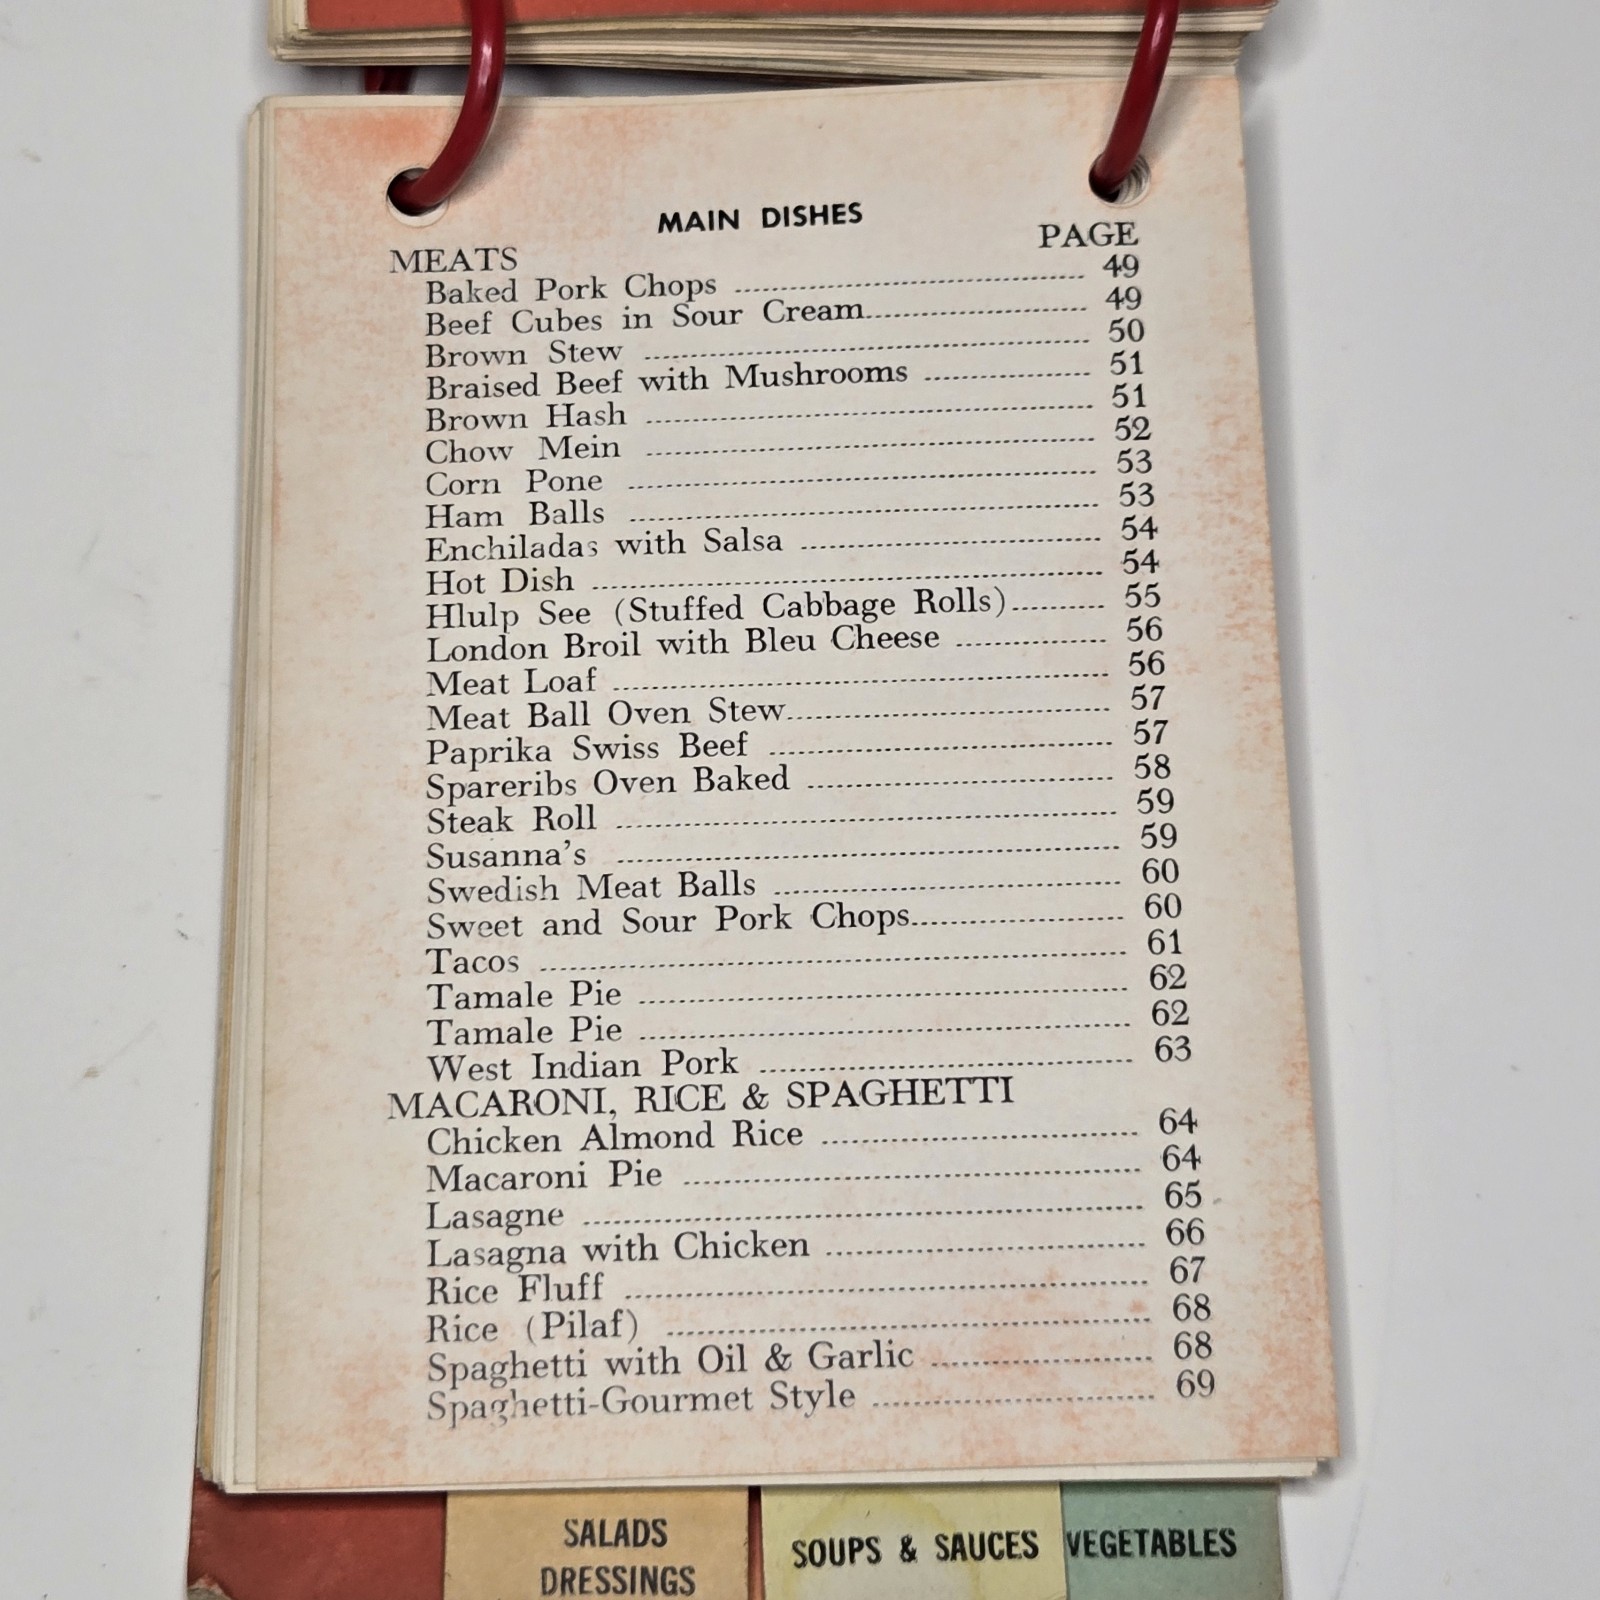 MAIN DISHES
MEATS PAGE
Baked Pork Chops 49
Beef Cubes in Sour Cream 49
Brown Stew 50
Braised Beef with Mushrooms 51
Brown Hash 51
Chow Mein 52
Corn Pone 53
Ham Balls 53
Enchiladas with Salsa 54
Hot Dish 54
Hlulp See (Stuffed Cabbage Rolls) 55
London Broil with Bleu Cheese 56
Meat Loaf 56
Meat Ball Oven Stew 57
Paprika Swiss Beef 57
Spareribs Oven Baked 58
Steak Roll 59
Susanna's 59
Swedish Meat Balls 60
Sweet and Sour Pork Chops 60
Tacos 61
Tamale Pie 62
Tamale Pie 62
West Indian Pork 63
MACARONI, RICE & SPAGHETTI
Chicken Almond Rice 64
Macaroni Pie 64
Lasagne 65
Lasagna with Chicken 66
Rice Fluff 67
Rice (Pilaf) 68
Spaghetti with Oil & Garlic 68
Spaghetti-Gourmet Style 69
SALADS
DRESSINGS
SOUPS & SAUCES
VEGETABLES